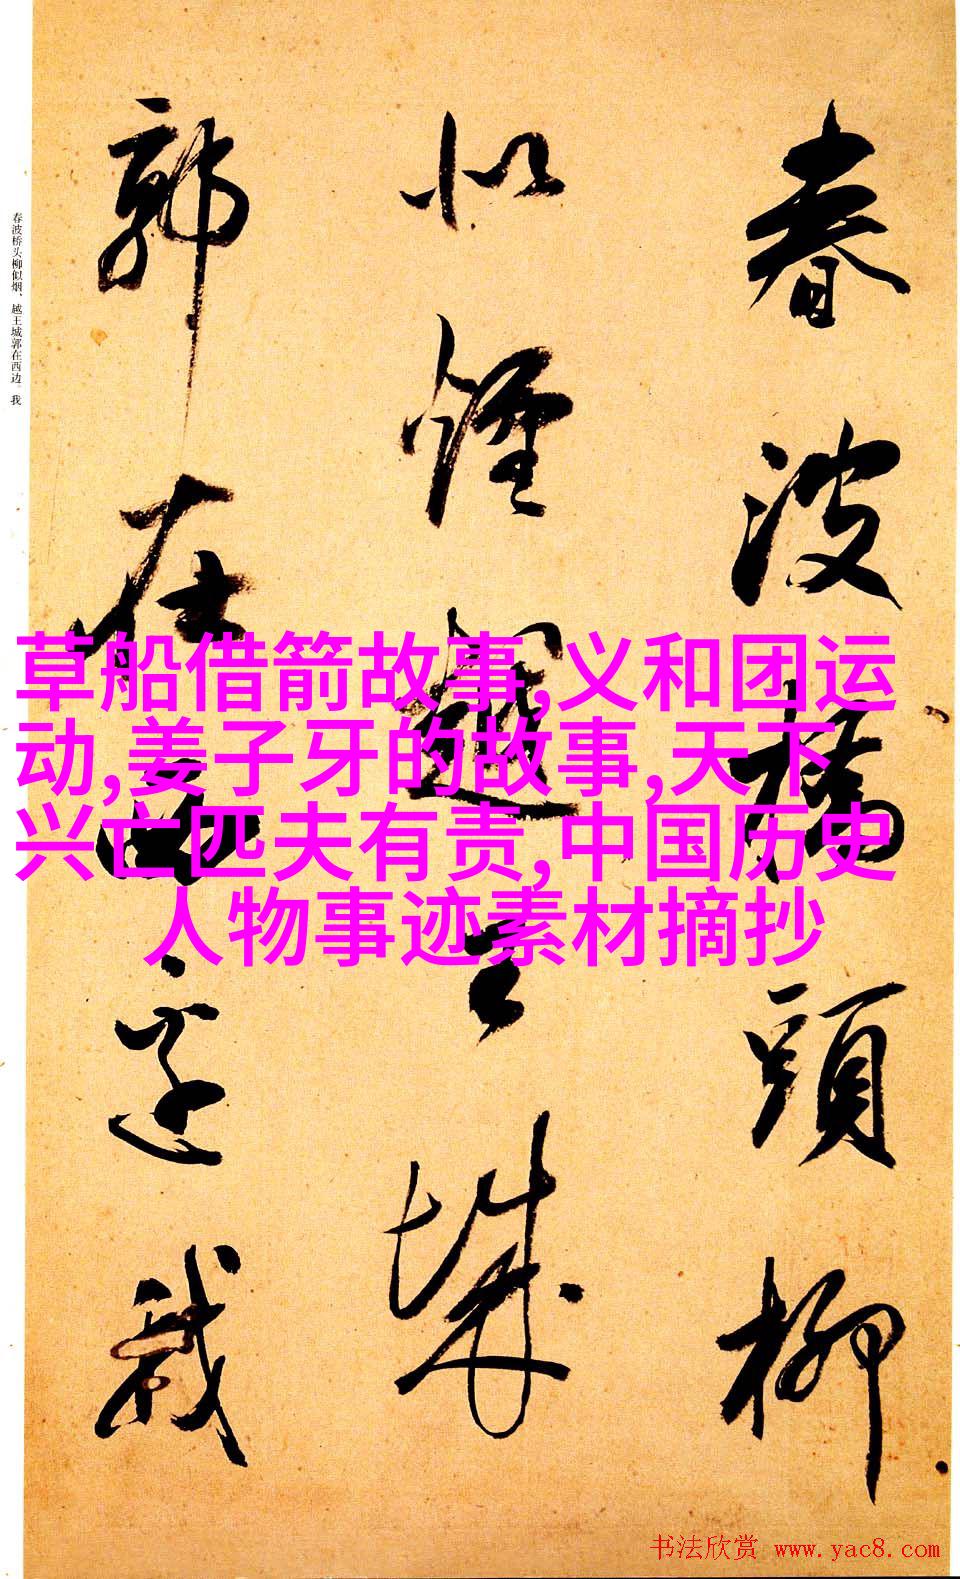 春波橋頭柳
似煙越王城
郭在西邊我
春波桥头柳似烟、越王城郭在西边。我
草船借箭故事,义和团运
动,姜子牙的故事,天下
兴亡匹夫有责,中国历史
人物事迹素材摘抄
书法欣赏 www.yac8.com